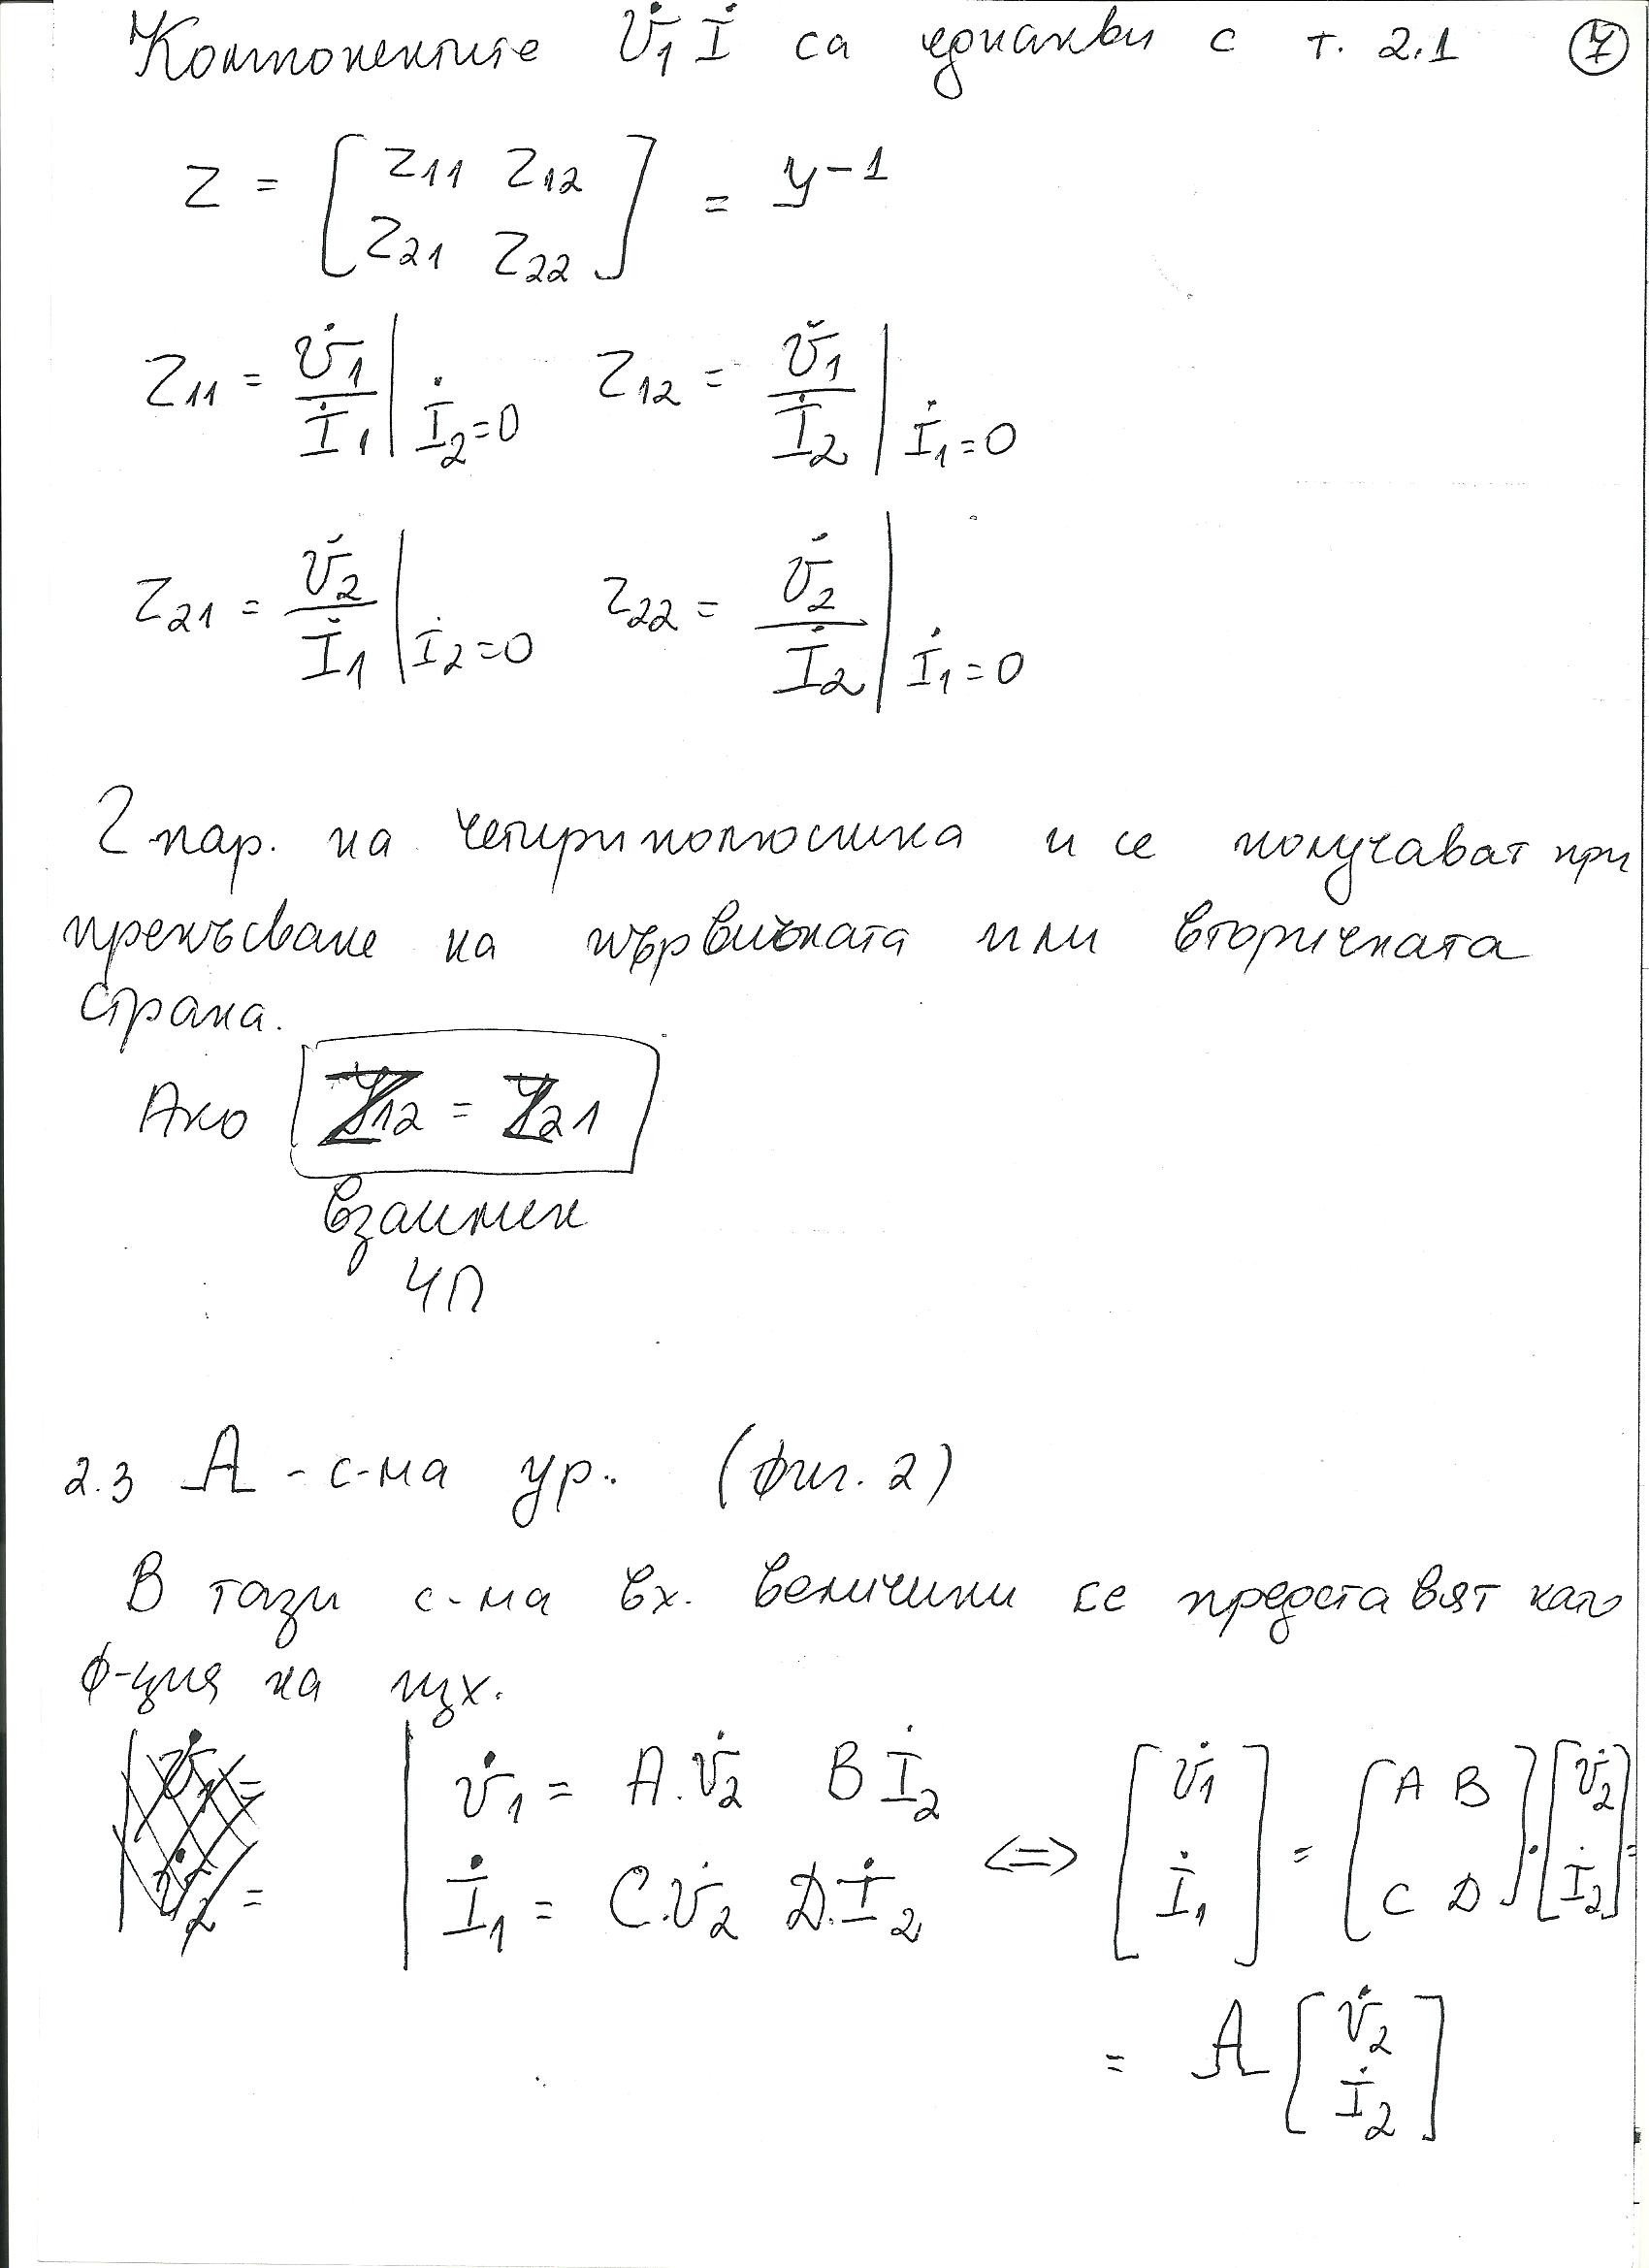 Компонентите U̇, İ са еднакви с т. 2.1 ⑦
Z = [Z11 Z12; Z21 Z22] = y−1
Z11 = U̇1/İ1 | İ2=0 Z12 = U̇1/İ2 | İ1=0
Z21 = U̇2/İ1 | İ2=0 Z22 = U̇2/İ2 | İ1=0
Z пар. на четириполюсника и се получават при
прекъсване на първичната или вторичната
страна.
Ако Z12 = Z21
Взаимен
ЧП
2.3 A - с-ма ур. (фиг. 2)
В тази с-ма вх. величини се представят като
ф-ция на изх.
U̇1 = A.U̇2 B İ2
İ1 = C.U̇2 D.İ2 <=> [U̇1; İ1] = [A B; C D].[U̇2; İ2] =
= A [U̇2; İ2]